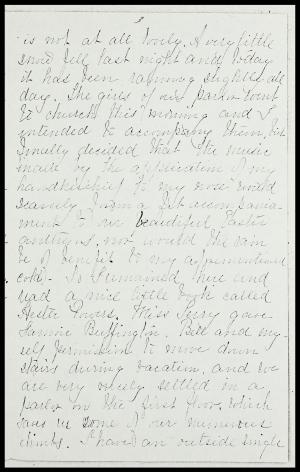 is not at all lovely. A very little
snow fell last night and today
it has been raining slightly all
day. The girls of our parlor went
to church this morning and I
intended to accompany them, but
finally decided that the music
made by the application of my
handkerchief to my nose would
scarcely form a fit accompani-
ment to our beautiful Easter
anthems, nor would the rain
be of benefit to my aforementioned
cold. So I remained here and
read a nice little book called
Hester Powers. Miss Terry gave
Fannie Buffington, Bell and my-
self permission to move down
stairs during vacation, and we
are very nicely settled in a
parlor on the first floor, which
saves us some of our numerous
climbs. I have an outside single